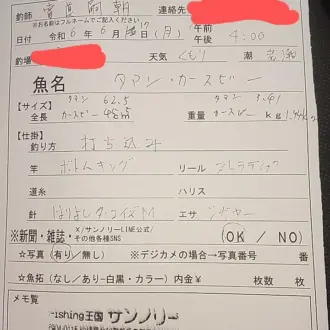 釣師 連絡先
※お名前はフルネームでご記入ください
日付 令和 6年 6月 17日 (月) 午前 午後 4:00
釣場 天気 くもり 潮
魚名 タマン・カースビー
【サイズ】 タマン 62.5 タマン 3.41
全長 カースビー 48cm 重量 カースビー kg
【仕掛】
釣り方 打ち込み
竿 ボトムキング リール
道糸 ハリス
針 エサ
※新聞・雑誌・X/サンノリーLINE公式/その他各種SNS (OK / NO)
☆写真 (有り/無し) ※デジカメの場合→写真番号 番
☆魚拓 (なし/あり-白黒・カラー) 内金¥ 枚数 枚
メモ覧
ishing王国 サンノリー